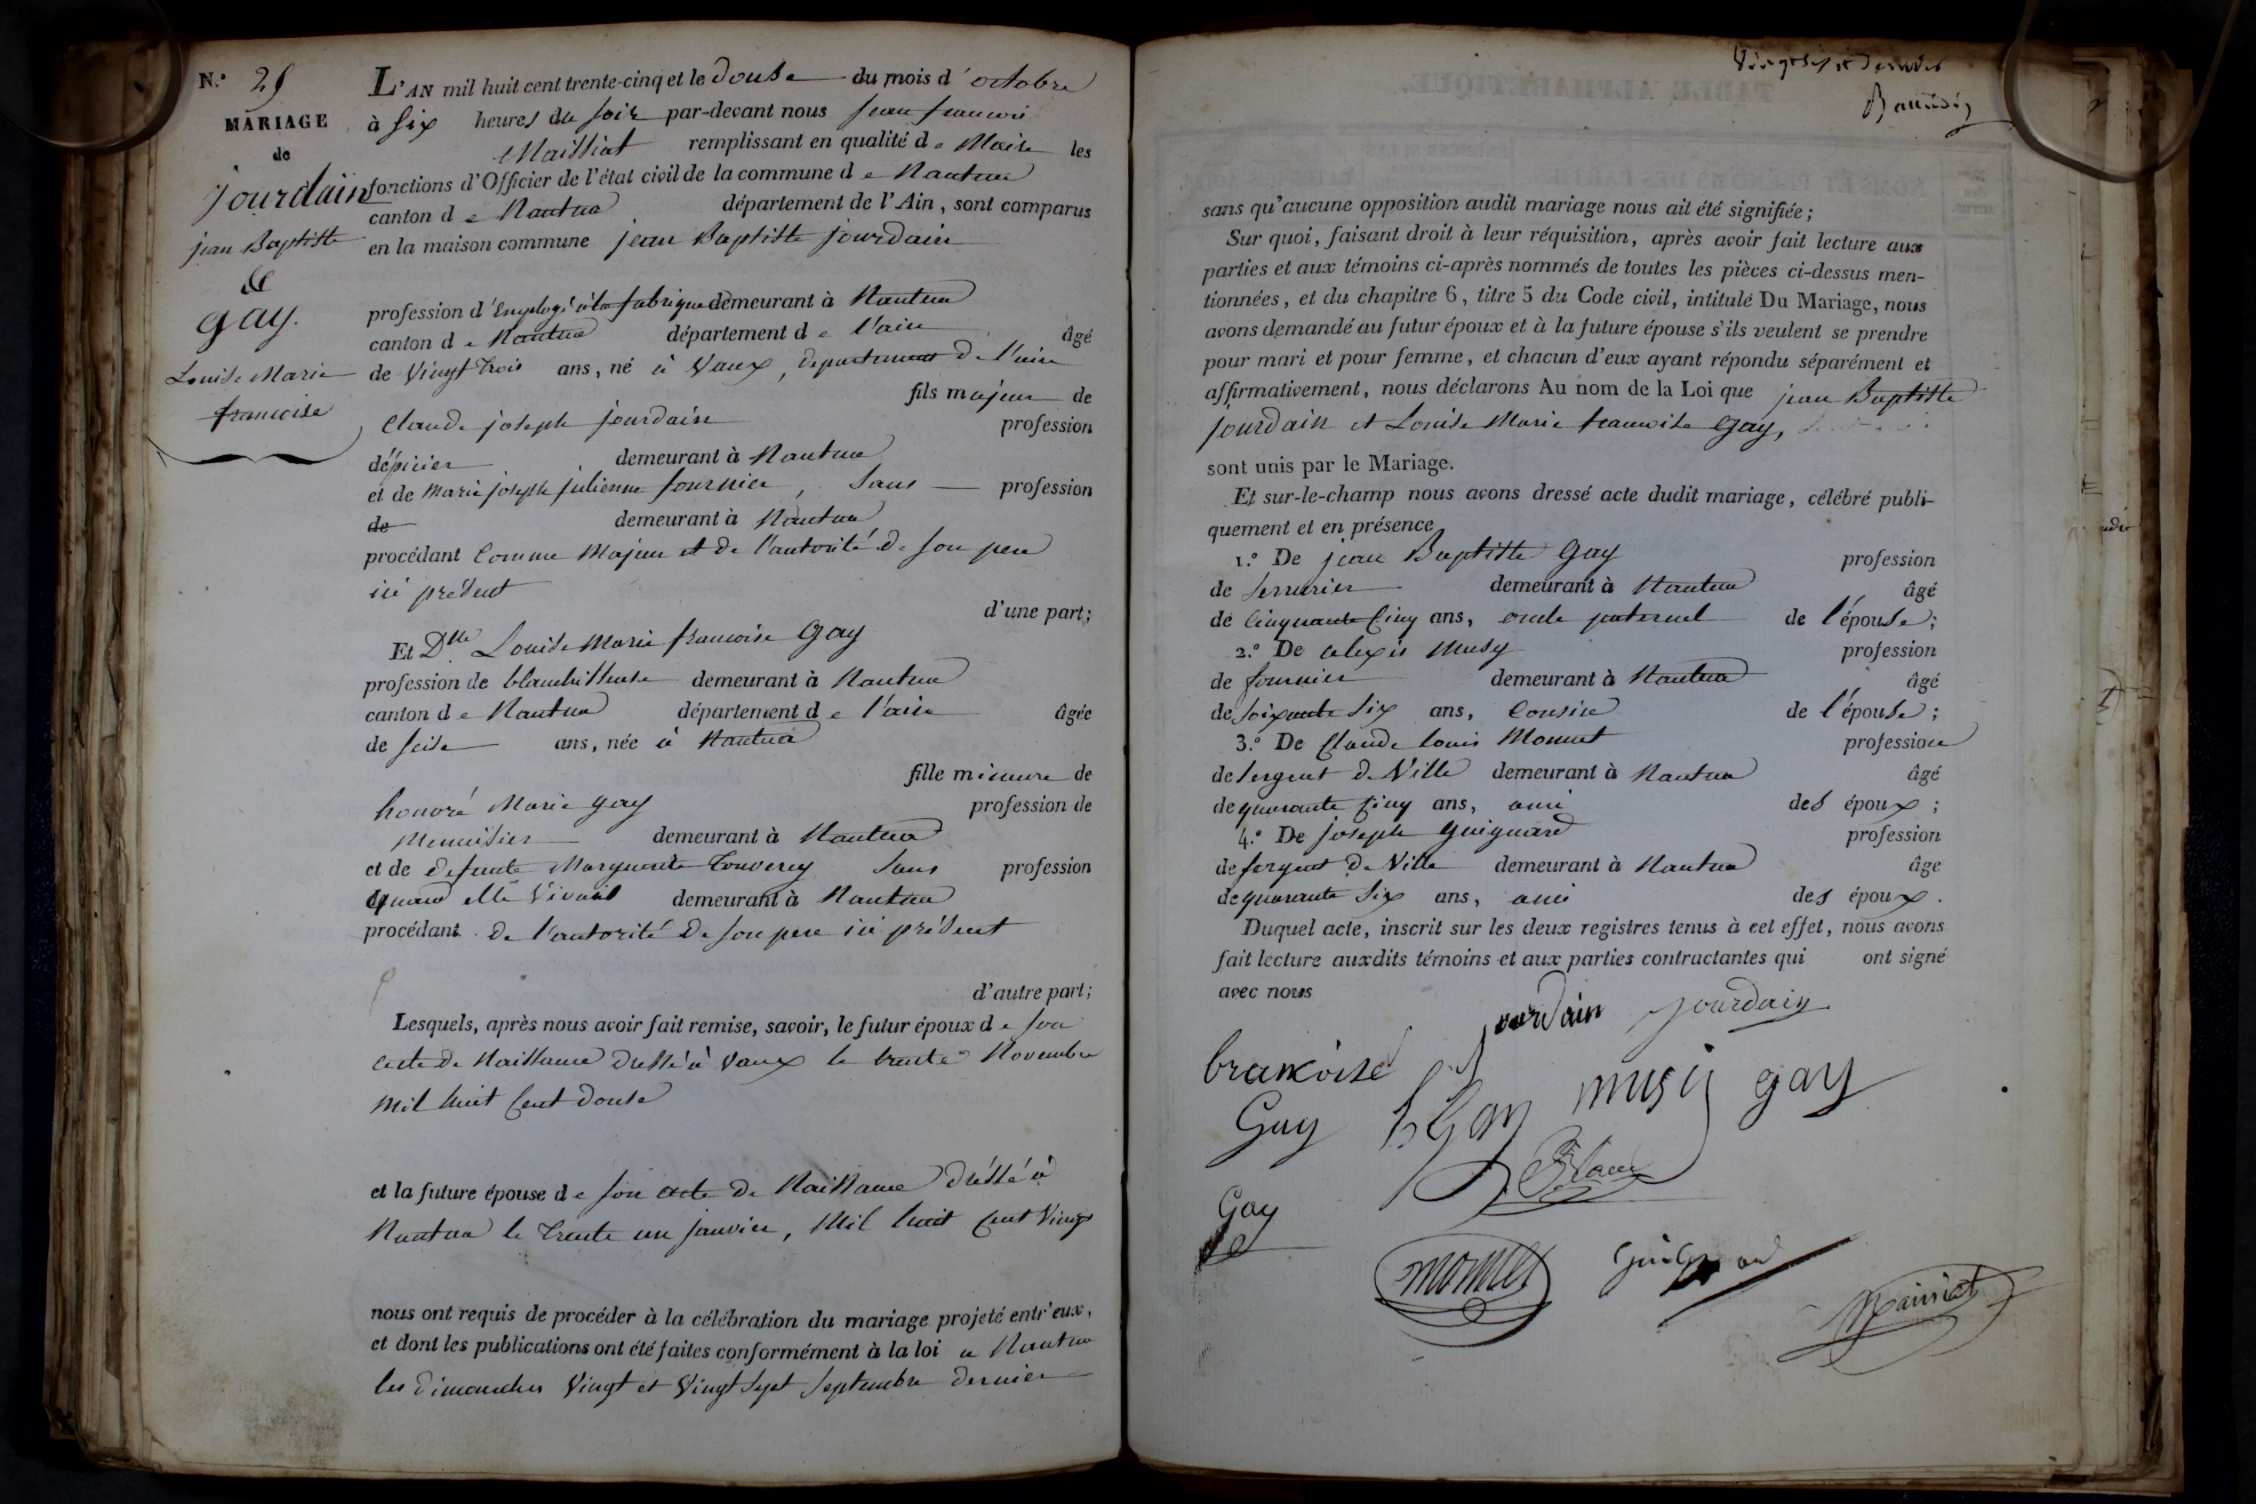 N.º 25
MARIAGE
de
jourdain
jean Baptiste
&
gay.
Louise Marie
francoise
L'AN mil huit cent trente-cinq et le douse du mois d'octobre
à six heures du soir par-devant nous jean francois
Maissiat remplissant en qualité de Maire les
fonctions d'Officier de l'état civil de la commune de Nantua
canton de Nantua département de l'Ain, sont comparus
en la maison commune jean Baptiste jourdain
profession d'Employé à la fabrique demeurant à Nantua
canton de Nantua département de l'ain âgé
de vingt trois ans, né à Vaux, departement de l'ain
fils majeur de
Claude joseph jourdain profession
d'épicier demeurant à Nantua
et de Marie joseph julienne fournier, sans profession
de demeurant à Nantua
procédant Comme Majeur et de l'autorité de son pere
ici présent
d'une part;
Et Dlle Louise Marie francoise Gay
profession de blanchisseuse demeurant à Nantua
canton de Nantua département de l'ain âgée
de seise ans, née à Nantua
fille mineure de
honoré Marie gay profession de
Menuisier demeurant à Nantua
et de defunte Marguerite sans profession
quand elle vivait demeurant à Nantua
procédant de l'autorité de son pere ici présent
d'autre part;
Lesquels, après nous avoir fait remise, savoir, le futur époux de son
acte de Naissance dressé à Vaux le trente Novembre
mil huit Cent douse
et la future épouse de son acte de Naissance dréssé à
Nantua le trente un janvier, Mil huit Cent Vingt
nous ont requis de procéder à la célébration du mariage projeté entr'eux,
et dont les publications ont été faites conformément à la loi a Nantua
les dimanches Vingt et Vingt sept septembre dernier
sans qu'aucune opposition audit mariage nous ait été signifiée;
Sur quoi, faisant droit à leur réquisition, après avoir fait lecture aux
parties et aux témoins ci-après nommés de toutes les pièces ci-dessus men-
tionnées, et du chapitre 6, titre 5 du Code civil, intitulé Du Mariage, nous
avons demandé au futur époux et à la future épouse s'ils veulent se prendre
pour mari et pour femme, et chacun d'eux ayant répondu séparément et
affirmativement, nous déclarons Au nom de la Loi que jean Baptiste
jourdain et Louise Marie francoise Gay,
sont unis par le Mariage.
Et sur-le-champ nous avons dressé acte dudit mariage, célébré publi-
quement et en présence
1.º De jean Baptiste Gay profession
de serrurier demeurant à Nantua âgé
de Cinquante Cinq ans, oncle paternel de l'épouse;
2.º De alexis Musy profession
de fournier demeurant à Nantua âgé
de soixante six ans, Cousin de l'épouse;
3.º De Claude louis Monnet profession
de sergent de Ville demeurant à Nantua âgé
de quarante Cinq ans, ami des époux;
4.º De joseph guignard profession
de sergent de Ville demeurant à Nantua âgé
de quarante six ans, ami des époux.
Duquel acte, inscrit sur les deux registres tenus à cet effet, nous avons
fait lecture auxdits témoins et aux parties contractantes qui ont signé
avec nous
jourdain jourdain
francoise
Gay musy gay
Gay
monnet guignard
Maissiat